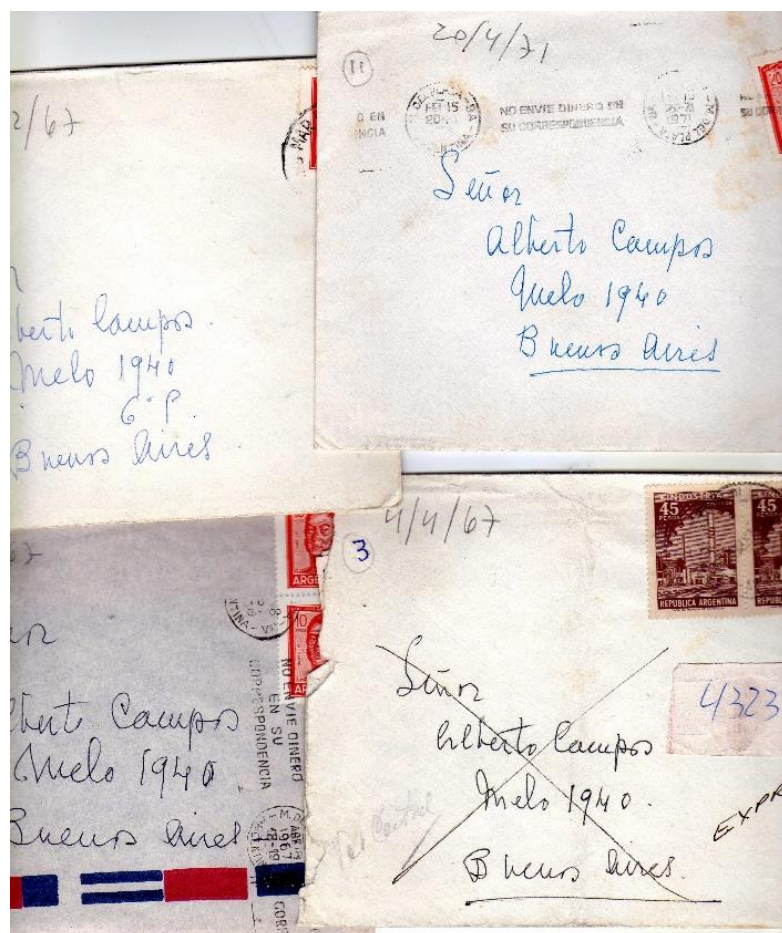 2/67
MAR
berto Campos
Melo 1940
6° P.
Buenos Aires
20/4/71
11
O EN
NCIA
DEL PLATA - BA
FEB 15
NO ENVIE DINERO EN
SU CORRESPONDENCIA
20-21
1971
M. DEL PLATA - BA
Señor
Alberto Campos
Melo 1940
Buenos Aires
67
or
lberto Campos
Melo 1940
Buenos Aires
ARGE
10
NO ENVIE DINERO
EN SU
CORRESPONDENCIA
1967
4/4/67
3
INDUSTRIA
45
PESOS
REPUBLICA ARGENTINA
45
REPUB
4323
Señor
Alberto Campos
Melo 1940.
Buenos Aires.
EXPR